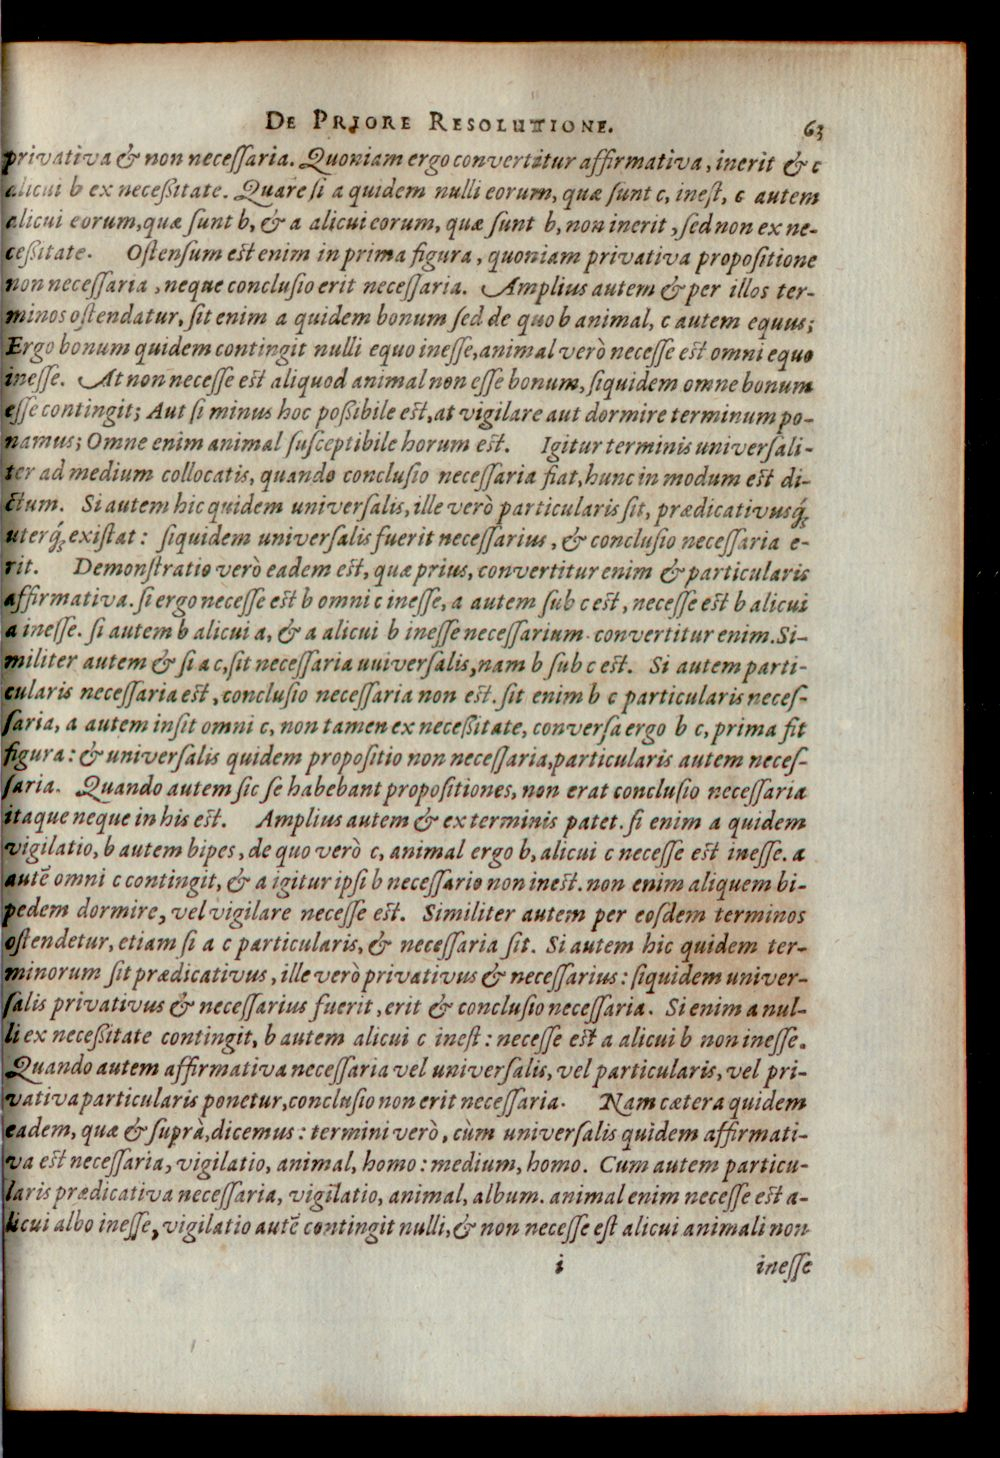 DE PRIORE RESOLUTIONE. 63
privativa & non necessaria. Quoniam ergo convertitur affirmativa, inerit & c
alicui b ex necessitate. Quare si a quidem nulli eorum, quæ sunt c, inest, c autem
alicui eorum, quæ sunt b, & a alicui eorum, quæ sunt b, non inerit, sed non ex ne-
cessitate. Ostensum est enim in prima figura, quoniam privativa propositione
non necessaria, neque conclusio erit necessaria. Amplius autem & per illos ter-
minos ostendatur, sit enim a quidem bonum sed de quo b animal, c autem equus;
Ergo bonum quidem contingit nulli equo inesse, animal verò necesse est omni equo
inesse. At non necesse est aliquod animal non esse bonum, siquidem omne bonum
esse contingit; Aut si minus hoc possibile est, at vigilare aut dormire terminum po-
namus; Omne enim animal susceptibile horum est. Igitur terminis universali-
ter ad medium collocatis, quando conclusio necessaria fiat, hunc in modum est di-
ctum. Si autem hic quidem universalis, ille verò particularis sit, prædicativusq́;
uterq́; existat: siquidem universalis fuerit necessarius, & conclusio necessaria e-
rit. Demonstratio verò eadem est, quæ prius, convertitur enim & particularis
affirmativa. si ergo necesse est b omni c inesse, a autem sub c est, necesse est b alicui
a inesse. si autem b alicui a, & a alicui b inesse necessarium. convertitur enim. Si-
militer autem & si a c, sit necessaria uuiversalis, nam b sub c est. Si autem parti-
cularis necessaria est, conclusio necessaria non est. sit enim b c particularis neces-
saria, a autem insit omni c, non tamen ex necessitate, conversa ergo b c, prima fit
figura: & universalis quidem propositio non necessaria, particularis autem neces-
saria. Quando autem sic se habebant propositiones, non erat conclusio necessaria
itaque neque in his est. Amplius autem & ex terminis patet. si enim a quidem
vigilatio, b autem bipes, de quo verò c, animal ergo b, alicui c necesse est inesse. a
autē omni c contingit, & a igitur ipsi b necessario non inest. non enim aliquem bi-
pedem dormire, vel vigilare necesse est. Similiter autem per eosdem terminos
ostendetur, etiam si a c particularis, & necessaria sit. Si autem hic quidem ter-
minorum sit prædicativus, ille verò privativus & necessarius: siquidem univer-
salis privativus & necessarius fuerit, erit & conclusio necessaria. Si enim a nul-
li ex necessitate contingit, b autem alicui c inest: necesse est a alicui b non inesse.
Quando autem affirmativa necessaria vel universalis, vel particularis, vel pri-
vativa particularis ponetur, conclusio non erit necessaria. Nam cætera quidem
eadem, quæ & suprà, dicemus: termini verò, cùm universalis quidem affirmati-
va est necessaria, vigilatio, animal, homo: medium, homo. Cum autem particu-
laris prædicativa necessaria, vigilatio, animal, album. animal enim necesse est a-
licui albo inesse, vigilatio autē contingit nulli, & non necesse est alicui animali non
i inesse